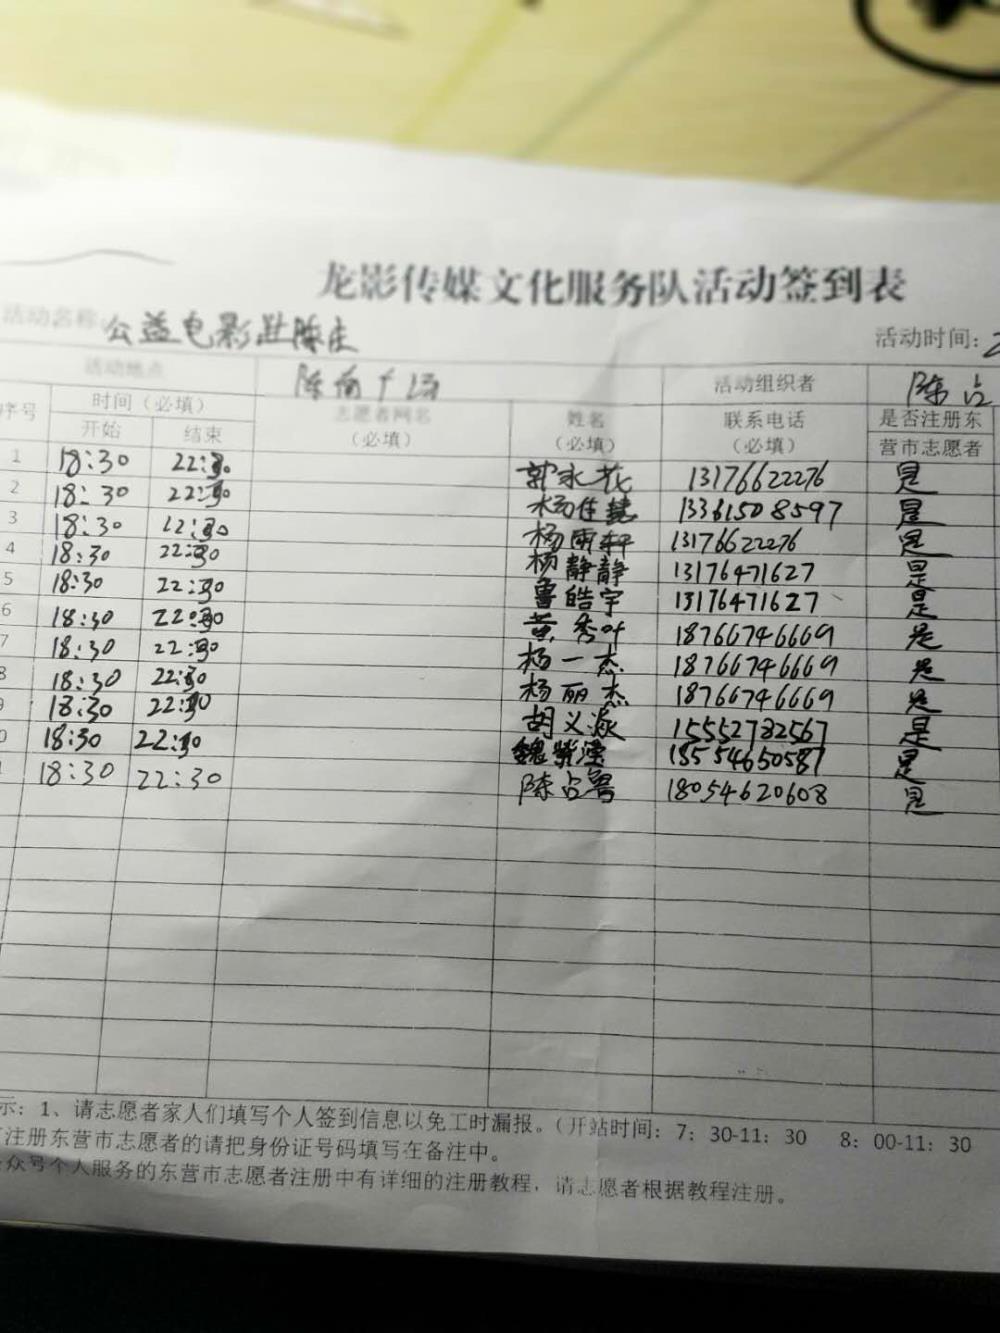 龙影传媒文化服务队活动签到表
活动名称: 公益电影进陈庄 活动时间: 2
活动地点 陈南广场 活动组织者 陈占
序号 时间（必填） 志愿者网名（必填） 姓名（必填） 联系电话（必填） 是否注册东营市志愿者
开始 结束
1 18:30 22:30 郭永花 13176622276 是
2 18:30 22:30 杨佳慧 13361508597 是
3 18:30 22:30 杨雨轩 13176622276 是
4 18:30 22:30 杨静静 13176471627 是
5 18:30 22:30 鲁皓宇 13176471627 是
6 18:30 22:30 黄秀叶 18766746669 是
7 18:30 22:30 杨一杰 18766746669 是
8 18:30 22:30 杨丽杰 18766746669 是
9 18:30 22:30 胡义 15552782567 是
0 18:30 22:30 魏紫 18554650587 是
1 18:30 22:30 陈占鲁 18054620608 是
示: 1、请志愿者家人们填写个人签到信息以免工时漏报。(开站时间: 7: 30-11: 30 8: 00-11: 30
注册东营市志愿者的请把身份证号码填写在备注中。
众号个人服务的东营市志愿者注册中有详细的注册教程，请志愿者根据教程注册。